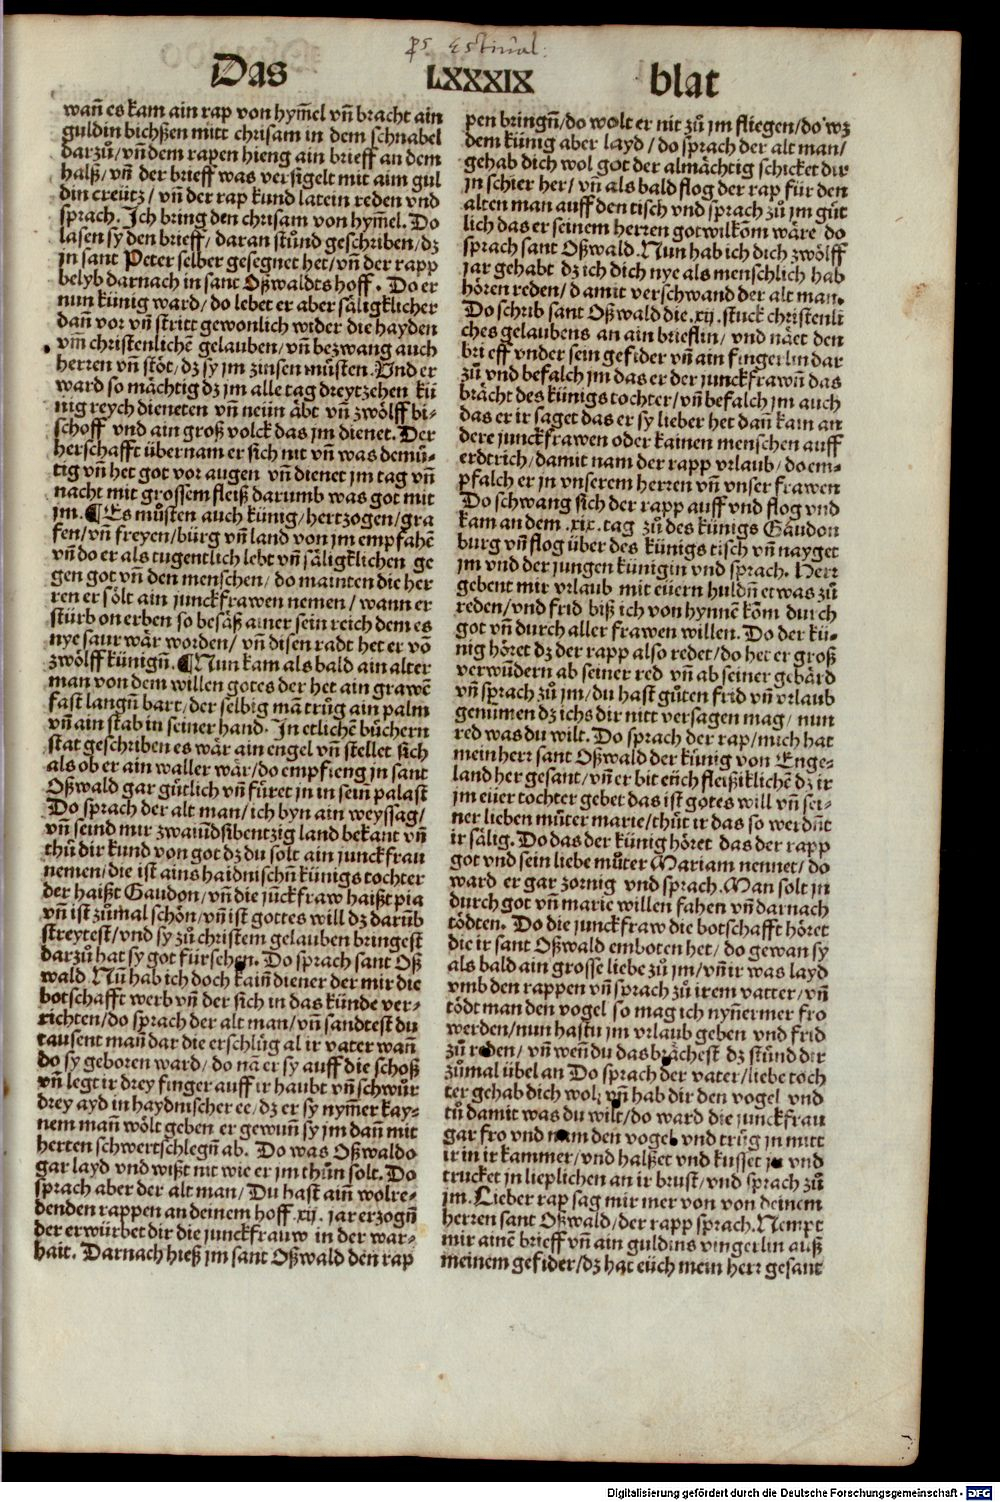 ps Estiual:
Das LXXXIX blat
wañ es kam ain rap von hym̃el vñ bracht ain
guldin bichßen mitt chrisam in dem schnabel
darzů/ vñ dem rapen hieng ain brieff an dem
halß/ vñ der brieff was versigelt mit aim gul
din creütz/ vñ der rap kund latein reden vnd
sprach. Ich bring den chrisam von hym̃el. Do
lasen sy den brieff/ daran stůnd geschriben/ dz
jn sant Peter selber gesegnet het/ vñ der rapp
belyb darnach in sant Oßwaldts hoff. Do er
nun künig ward/ do lebet er aber säligklicher
dañ vor vñ stritt gewonlich wider die hayden
vm̃ christenlichẽ gelauben/ vñ bezwang auch
herren vñ stöt/ dz sy jm zinsen můsten. Vnd er
ward so mächtig dz jm alle tag dreytzehen kü
nig reych dieneten vñ neün äbt vñ zwölff bi-
schoff vnd ain groß volck das jm dienet. Der
herschafft übernam er sich nit vñ was demů-
tig vñ het got vor augen vñ dienet jm tag vñ
nacht mit grossem fleiß darumb was got mit
jm. ¶ Es můsten auch künig/ hertzogen/ gra
fen/ vñ freyen/ bürg vñ land von jm empfahẽ
vñ do er als tugentlich lebt vñ säligklichen ge
gen got vñ den menschen/ do mainten die her
ren er sölt ain junckfrawen nemen/ wann er
stürb on erben so besäß ainer sein reich dem es
nye saur wär worden/ vñ disen radt het er võ
zwölff künigñ. ¶ Nun kam als bald ain alter
man von dem willen gotes der het ain grawẽ
fast langñ bart/ der selbig mã trůg ain palm
vñ ain stab in seiner hand. In etlichẽ büchern
stat geschriben es wär ain engel vñ stellet sich
als ob er ain waller wär/ do empfieng jn sant
Oßwald gar gütlich vñ füret jn in sein̄ palast
Do sprach der alt man/ ich byn ain weyssag/
vñ seind mir zwaiũdsibentzig land bekant vñ
thů dir kund von got dz du solt ain junckfrau
nemen/ die ist ains haidnischñ künigs tochter
der haißt Gaudon/ vñ die jũckfraw haißt pia
vñ ist zůmal schön/ vñ ist gottes will dz darũb
streytest/ vnd sy zů christem gelauben bringest
darzů hat sy got fürsehen. Do sprach sant Oß
wald Nũ hab ich doch kain̄ diener der mir die
botschafft werb vñ der sich in das künde ver-
richten/ do sprach der alt man/ vñ sandtest du
tausent mañ dar die erschlüg al ir vater wañ
do sy geboren ward/ do nã er sy auff die schoß
vñ legt ir drey finger auff ir haubt vñ schwůr
drey ayd in haydnischer ee/ dz er sy nym̃er kay-
nem mañ wölt geben er gewuñ sy jm dañ mit
herten schwertschlegñ ab. Do was Oßwaldo
gar layd vnd wißt nit wie er jm thůn solt. Do
sprach aber der alt man/ Du hast ain̄ wolre-
denden rappen an deinem hoff .xij. jar erzogñ
der erwürbet dir die junckfrauw in der war-
hait. Darnach hieß jm sant Oßwald den rap
pen bringñ/ do wolt er nit zů jm fliegen/ do wz
dem künig aber layd/ do sprach der alt man/
gehab dich wol got der almächtig schicket dir
jn schier her/ vñ als bald flog der rap für den
alten man auff den tisch vnd sprach zů jm güt
lich das er seinem herren gotwilkom wäre do
sprach sant Oßwald. Nun hab ich dich zwölff
jar gehabt dz ich dich nye als menschlich hab
hören reden/ damit verschwand der alt man.
Do schrib sant Oßwald die .xij. stuck christenli
ches gelaubens an ain brieflin/ vnd näet den
brieff vnder sein gefider vñ ain fingerlin dar
zů vnd befalch jm das er der junckfrawñ das
brächt des künigs tochter/ vñ befalch jm auch
das er ir saget das er sy lieber het dañ kam an
dere junckfrawen oder kainen menschen auff
erdtrich/ damit nam der rapp vrlaub/ do em-
pfalch er jn vnserem herren vñ vnser frawen
Do schwang sich der rapp auff vnd flog vnd
kam an dem .xix. tag zů des künigs Gaudon
burg vñ flog über des künigs tisch vñ nayget
jm vnd der jungen künigin vnd sprach. Herr
gebent mir vrlaub mit eüern huldñ etwas zů
reden/ vnd frid biß ich von hynnẽ kom̃ durch
got vñ durch aller frawen willen. Do der kü-
nig höret dz der rapp also redet/ do het er groß
verwũdern ab seiner red vñ ab seiner gebärd
vñ sprach zů jm/ du hast gůten frid vñ vrlaub
genummen dz ichs dir nitt versagen mag/ nun
red was du wilt. Do sprach der rap/ mich hat
mein herr sant Oßwald der künig von Enge-
land her gesant/ vñ er bit eüch fleißiklichẽ dz ir
jm eüer tochter gebet das ist gotes will vñ sei-
ner lieben můter marie/ thůt ir das so werdñt
ir sälig. Do das der künig höret das der rapp
got vnd sein liebe můter Mariam nennet/ do
ward er gar zornig vnd sprach. Man solt jn
durch got vñ marie willen fahen vñ darnach
tödten. Do die junckfraw die botschafft höret
die ir sant Oßwald emboten het/ do gewan sy
als bald ain grosse liebe zů jm/ vñ ir was layd
vmb den rappen vñ sprach zů irem vatter/ vñ
tödt man den vogel so mag ich nyñermer fro
werden/ nun hastu jm vrlaub geben vnd frid
zů reden/ vñ weñ du das brächest dz stůnd dir
zůmal übel an Do sprach der vater/ liebe toch
ter gehab dich wol/ vñ hab dir den vogel vnd
tů damit was du wilt/ do ward die junckfrau
gar fro vnd nam den vogel vnd trůg jn mitt
ir in ir kammer/ vnd halßet vnd kusset jn vnd
trucket jn lieplichen an ir brust/ vnd sprach zů
jm. Lieber rap sag mir mer von von deinem
herren sant Oßwald/ der rapp sprach. Nempt
mir ainẽ brieff vñ ain guldins vingerlin auß
meinem gefider/ dz hat eüch mein herr gesant
Digitalisierung gefördert durch die Deutsche Forschungsgemeinschaft - DFG